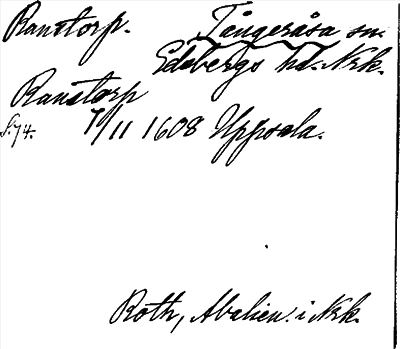 Ranstorp. Tångeråsa sn.
Edsbergs hd. Nrk.
Ranstorp
S.74. 7/11 1608 Uppsala.
Roth, Abalien. i Nrk.